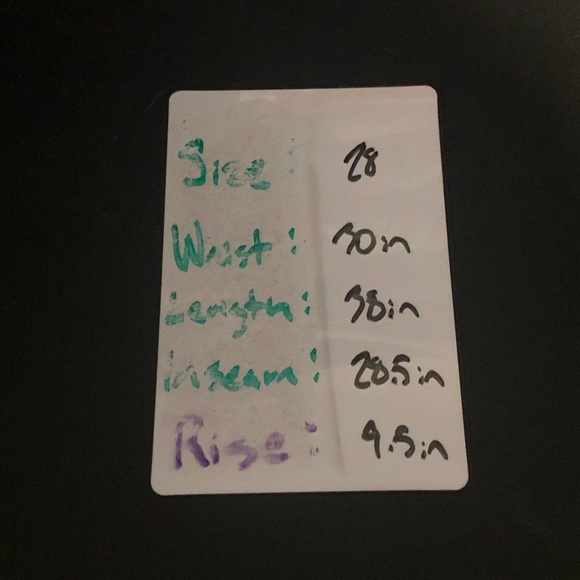 Size: 28
Waist: 30in
Length: 38in
Inseam: 28.5in
Rise: 9.5in